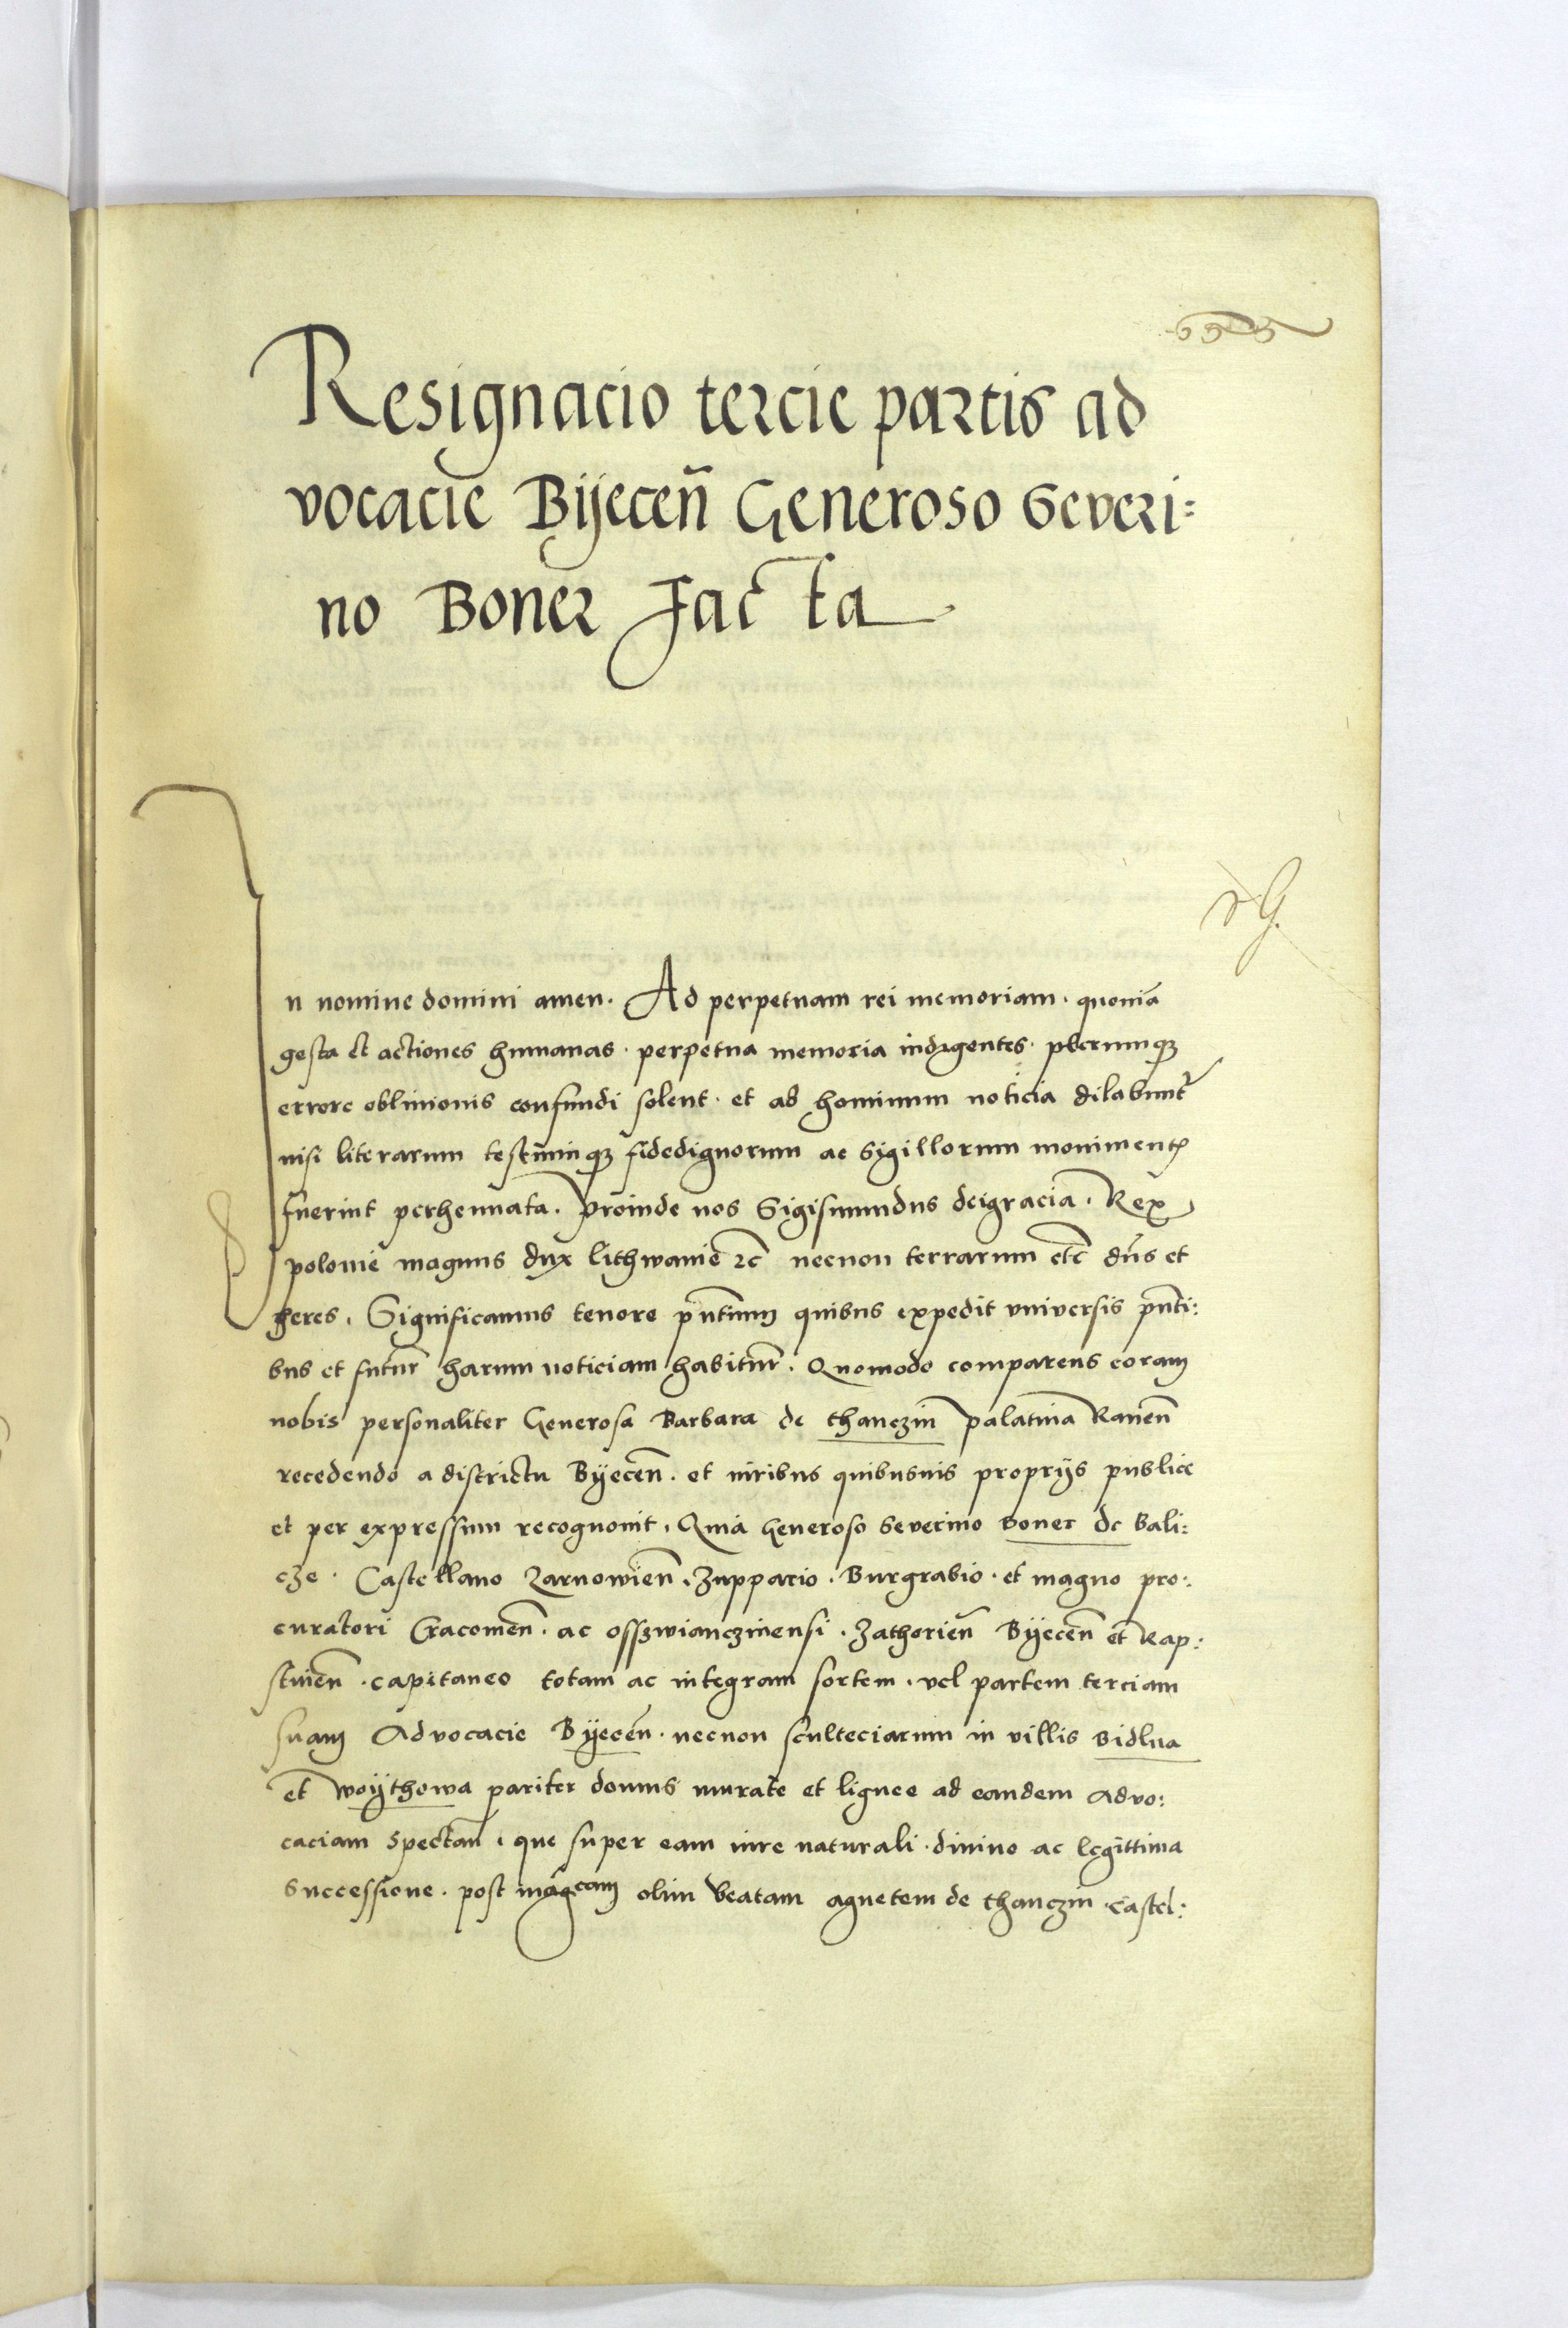 Resignacio tercie partis ad
vocacie Bÿeceñ Generoso Severi:
no Boner Facta
In nomine domini amen. Ad perpetuam rei memoriam. quoniā
gesta et actiones humanas. perpetua memoria indigentes. plerumqꝫ
errore oblivionis confundi solent. et ab hominum noticia dilabunt᷑
nisi literarum testiuͫmqꝫ fidedignorum ac sigillorum monimentꝭ
fuerint perhennata. proinde nos Sigismundus dei gracia. Rex
polonie magnus dux lithwanie ꝛc̄ necnon terrarum etc̄ dn̄s et
heres. Significamus tenore pn̄tium quibus expedit universis pn̄ti:
bus et futur̄ harum noticiam habitur̄. Quomodo comparens coram
nobis personaliter Generosa Barbara de thanczin palatina Raven̄
recedendo a districtu Bÿecen̄. et iuribus quibusuis proprÿs publice
et per expressum recognouit. Quia Generoso Severino Boner de Bali:
cze. Castellano Zarnowien̄. Zuppario. Burgrabio. et magno pro:
curatori Cracouien̄. ac osszwianczinensi. Zathorien̄ Bÿecen̄ et Rap:
stinen̄. capitaneo totam ac integram sortem. vel partem terciam
suam Advocacie Bÿecen̄. necnon sculteciarum in villis Bidlna
et woÿthowa pariter domus murate et lignee ad eandem Advo:
caciam Spectan̄. que super eam iure naturali. divino ac legittima
Successione. post mag̃cam olim beatam agnetem de thanczin. Castel: